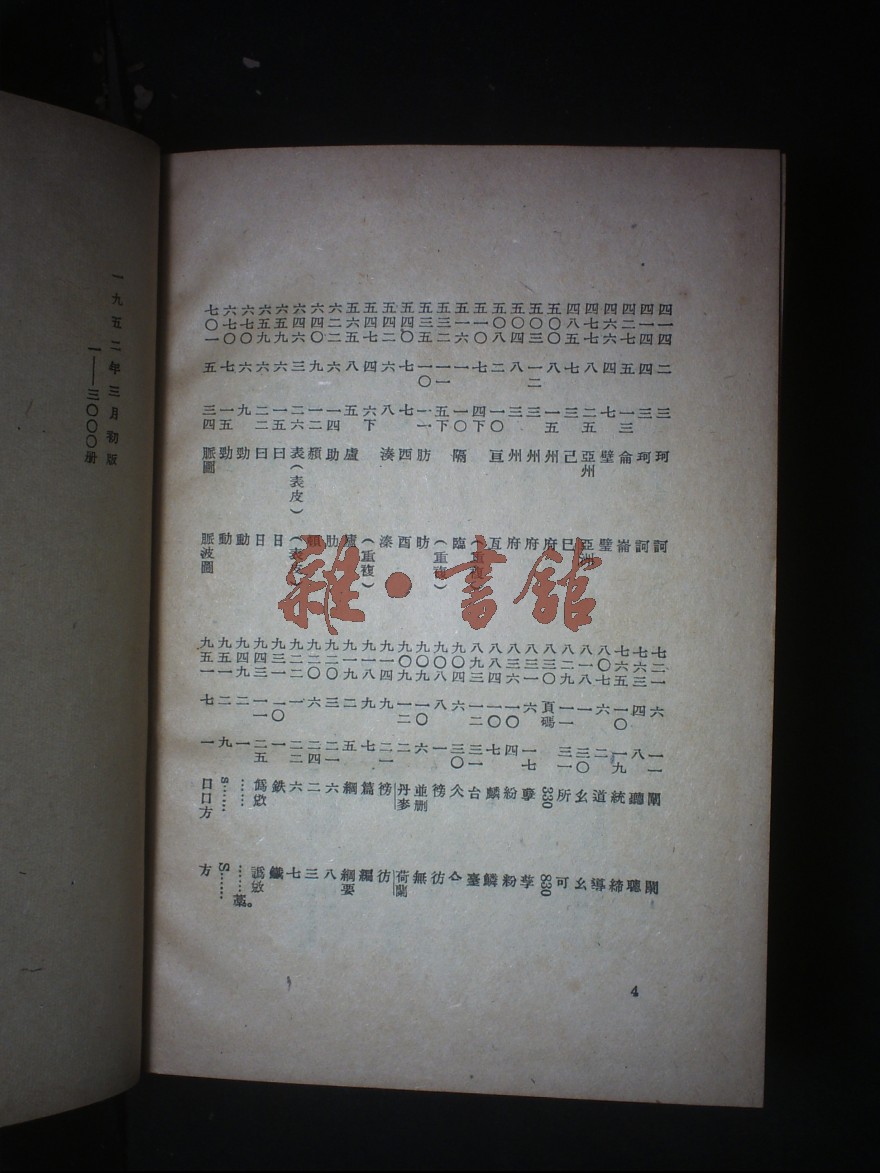 四一四 二 三 珂 訶
四一四 四 三 珂 訶
四二七 五 一三 侖 崙
四六七 四 七 璧 壁
四七七 八 二五 亞州 亞洲
四八五 七 三 己 巳
五〇〇 一五 州 府
五〇三 一二 三 州 府
五〇四 八 三 州 府
五〇八 二 一〇 亘 亙
五一〇 七 四下 （重複）
五一六 一 一〇 隔 臨
五三二 一一 五下 （重複）
五三五 一〇 一一 肪 昉
五四〇 七 七 酉 酋
五四二 六 八 湊 溱
五四七 四 六下 （重複）
五六五 八 五 盧 廬
六二二 六 一四 助 肋
六四〇 九 一二 顏 頰
六四六 三 二六 表（表皮） （表皮）
六五九 六 一五 曰 日
六五九 六 二二 曰 日
六七〇 六 九 勁 動
六七〇 七 一五 勁 動
七〇一 五 三四 脈圖 脈波圖
七二一 六 一一 闡 闡
七六三 四 八 聽 聰
七六五 一〇 一九 統 締
八〇七 六 二 道 導
八一八 一 三〇 幺 玄
八二九 一一 三一 所 可
八三〇 頁碼 330 830
八三一 六 一七 孽 孳
八三六 一〇 四 粉 粉
八八一 一〇 七 麟 鱗
八九三 一二 三一 台 臺
九〇四 六 三〇
九〇八 八 一 徬 彷
九〇九 一〇 六 並删 無
九〇九 一二 二 丹麥 荷蘭
九一四 九 二一 徬 彷
九一八 九 七 篇 編
九一九 二 五 綱 綱要
九二〇 三 二四 六 八
九二〇 六 二 二 三
九二二 一 二二 六 七
九三一 一〇 一 鉄 鐵
九四三 一一 二五 僞欵 譌欵
九四九 二 一 …… ……藁。
九五一 二 九 s…… S……
九五一 七 一 日口方 方
4
一九五二年三月初版
一——三〇〇〇册
雜·書館